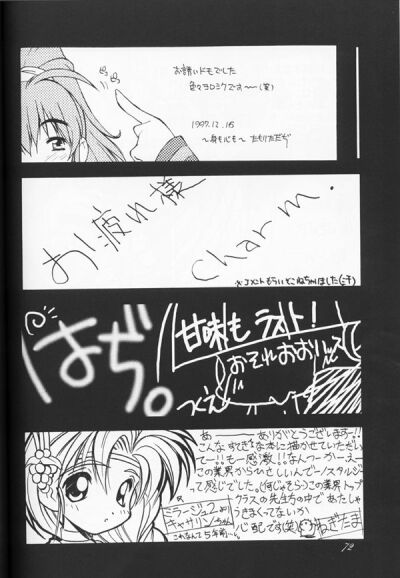 お誘いドモでした
色々ヨロシクです〜(笑)
1997.12.16
〜身も心も〜 たもりただぢ
お疲れ様
Charm.
はぢ。
甘味もテイスト!
おそれおおい
つくえ
あ ―― ありがとうございます―!!
こんなすてきな本に描かせていただい
て―!!も―感激!!なんつーか―
この業界からひさしいんでノスタルジ
って感じでした。(何じゃそら)この業界トップ
クラスの先生方の中であたしゃ
うきまくってないか
心配です(笑) ねぎたま
ミラージュ2より
キャサリンちゃん
これなんて5年前〜
72